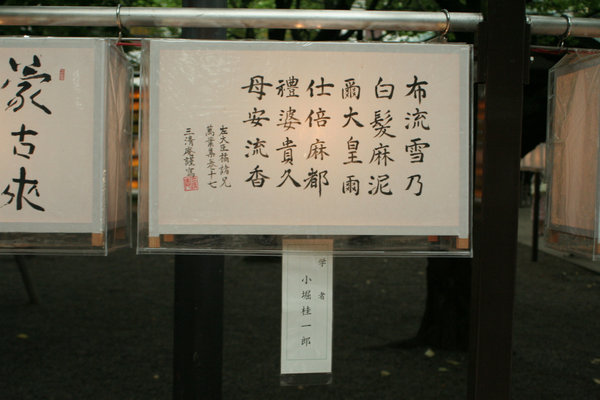 布流雪乃
白髮麻泥
爾大皇爾
仕倍麻都
禮婆貴久
母安流香
左大臣橘諸兄
萬葉集巻十七
三清庵謹書
学者
小堀桂一郎
蒙古来